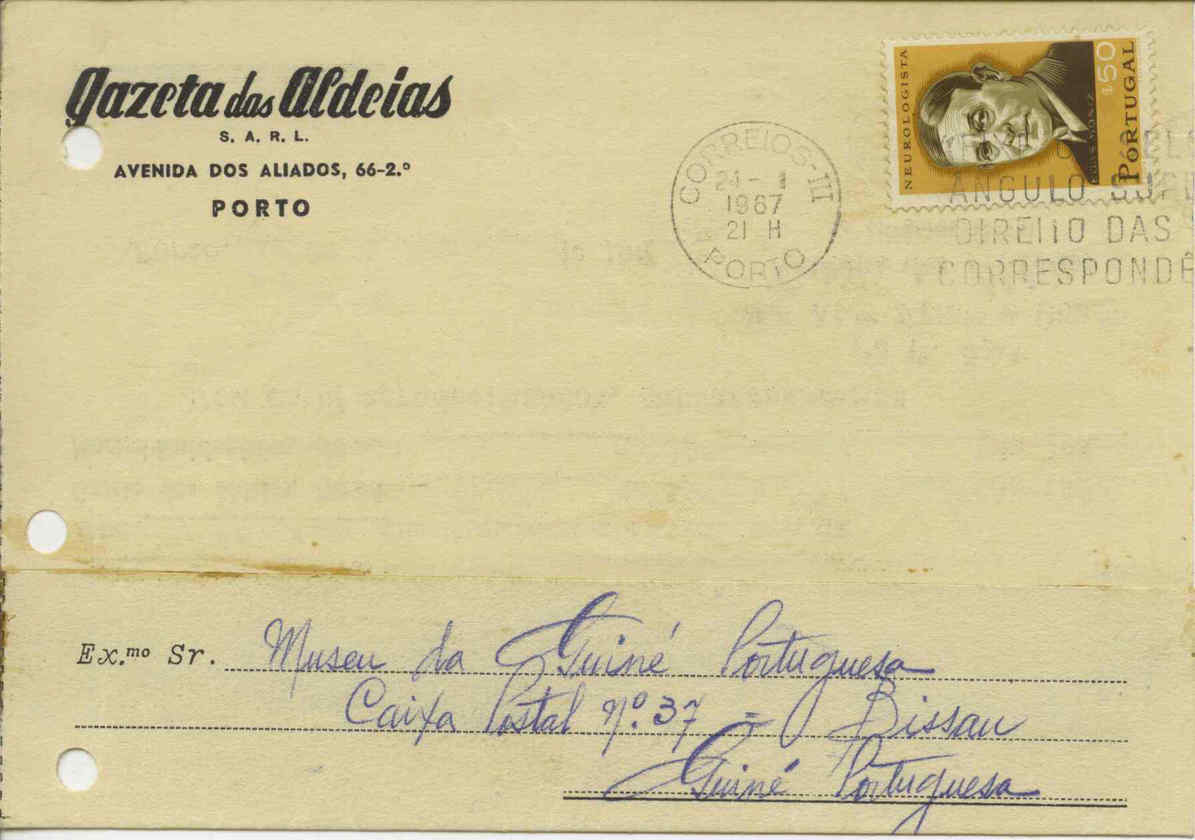 Gazeta das Aldeias
S. A. R. L.
AVENIDA DOS ALIADOS, 66-2.º
PORTO
CORREIOS-III
24-1
1967
21 H
PORTO
NEUROLOGISTA
EGAS MONIZ
1$50
PORTUGAL
ANGULO
DIREITO DAS
CORRESPONDÊ
Ex.mo Sr. Museu da Guiné Portuguesa
Caixa Postal Nº. 37 = Bissau
Guiné Portuguesa